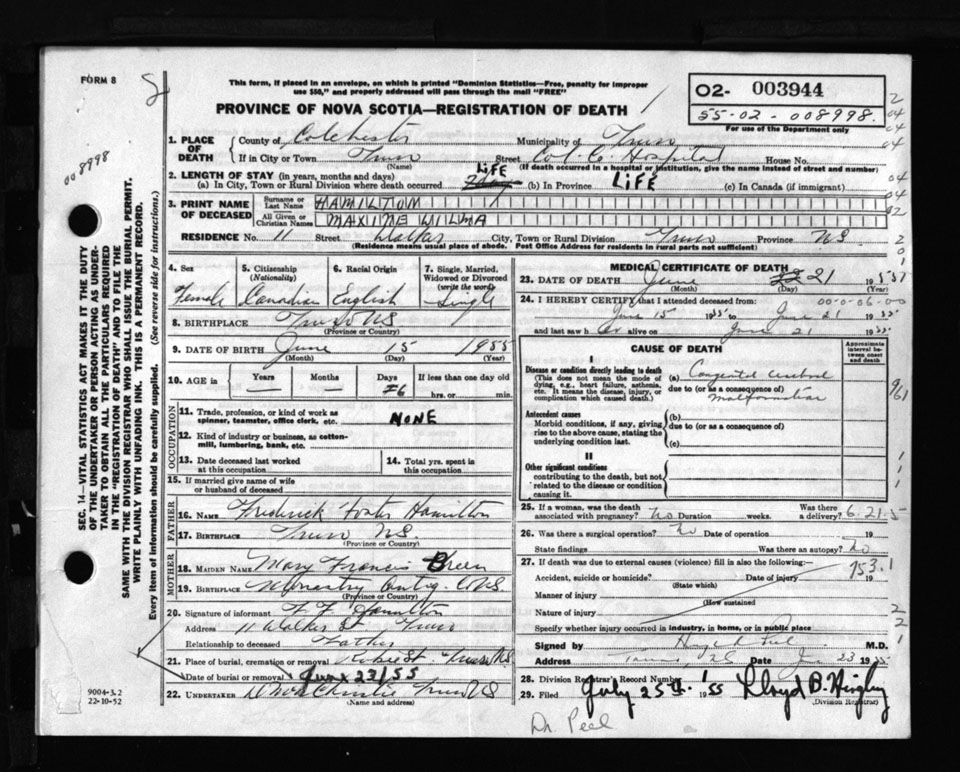 FORM 8
This form, if placed in an envelope, on which is printed "Dominion Statistics—Free, penalty for improper
use $50," and properly addressed will pass through the mail "FREE"
PROVINCE OF NOVA SCOTIA—REGISTRATION OF DEATH
02- 003944
55-02-008998.
For use of the Department only
008998
SEC. 14—VITAL STATISTICS ACT MAKES IT THE DUTY
OF THE UNDERTAKER OR PERSON ACTING AS UNDER-
TAKER TO OBTAIN ALL THE PARTICULARS REQUIRED
IN THE "REGISTRATION OF DEATH" AND TO FILE THE
SAME WITH THE DIVISION REGISTRAR WHO SHALL ISSUE THE BURIAL PERMIT.
WRITE PLAINLY WITH UNFADING INK. THIS IS A PERMANENT RECORD.
Every item of information should be carefully supplied. (See reverse side for instructions.)
1. PLACE OF DEATH
County of Colchester Municipality of Truro
If in City or Town Truro Street Col. Co Hospital House No.
(Name) (If death occurred in a hospital or institution, give its name instead of street and number)
2. LENGTH OF STAY (in years, months and days)
(a) In City, Town or Rural Division where death occurred LIFE (b) In Province LIFE (c) In Canada (if immigrant)
3. PRINT NAME OF DECEASED
Surname or Last Name HAMILTON
All Given or Christian Names MAXINE WILMA
RESIDENCE No. 11 Street Walker City, Town or Rural Division Truro Province NS.
(Residence means usual place of abode. Post Office Address for residents in rural parts not sufficient)
4. Sex Female
5. Citizenship (Nationality) Canadian
6. Racial Origin English
7. Single, Married, Widowed or Divorced (write the word) Single
8. BIRTHPLACE Truro NS
(Province or Country)
9. DATE OF BIRTH June 15 1955
(Month) (Day) (Year)
10. AGE in Years — Months — Days 6 If less than one day old
hrs. or min.
OCCUPATION
11. Trade, profession, or kind of work as
spinner, teamster, office clerk, etc. NONE
12. Kind of industry or business, as cotton-
mill, lumbering, bank, etc.
13. Date deceased last worked
at this occupation
14. Total yrs. spent in
this occupation
15. If married give name of wife
or husband of deceased
FATHER
16. Name Frederick Foster Hamilton
17. Birthplace Truro NS.
(Province or Country)
MOTHER
18. MAIDEN NAME Mary Francis Breen
19. BIRTHPLACE Monastry Antig. Co NS
(Province or Country)
20. Signature of informant F F Hamilton
Address 11 Walker St Truro
Relationship to deceased Father
21. Place of burial, cremation or removal Robie St. Truro NS
Date of burial or removal June 23/55
22. UNDERTAKER Christie Truro NS
(Name and address)
9004-3.2
22-10-52
MEDICAL CERTIFICATE OF DEATH
23. DATE OF DEATH June 21 1955
(Month) (Day) (Year)
00-0-06-00
24. I HEREBY CERTIFY that I attended deceased from:
June 15 1955 to June 21 1955
and last saw her alive on June 21 1955
CAUSE OF DEATH
Approximate interval between onset and death
I
Disease or condition directly leading to death
(This does not mean the mode of dying, e.g., heart failure, asthenia, etc. It means the disease, injury, or complication which caused death.)
(a) Congenital cerebral
due to (or as a consequence of)
malformation
Antecedent causes
Morbid conditions, if any, giving rise to the above cause, stating the underlying condition last.
(b)
due to (or as a consequence of)
(c)
II
Other significant conditions
contributing to the death, but not related to the disease or condition causing it.
25. If a woman, was the death
associated with pregnancy? No Duration weeks. Was there a delivery? 6.21.5
26. Was there a surgical operation? No Date of operation 19
State findings Was there an autopsy? No
27. If death was due to external causes (violence) fill in also the following:—
753.1
Accident, suicide or homicide? Date of injury 19
(State which)
Manner of injury
(How sustained
Nature of injury
Specify whether injury occurred in industry, in home, or in public place
Signed by Peel M.D.
Address Truro NS Date Jun 23 1955
28. Division Registrar's Record Number
29. Filed July 25th 1955 Lloyd B.
(Division Registrar)
Dr Peel